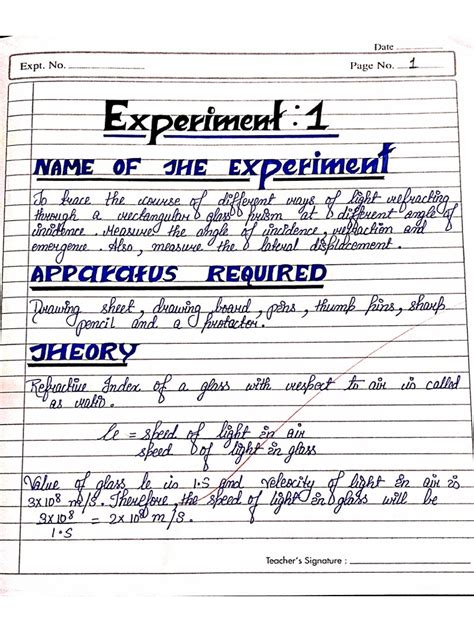 Date
Expt. No.
Page No. 1
Experiment : 1
NAME OF THE Experiment
To trace the course of different rays of light refracting
through a rectangular glass prism at different angle of
incidence. Measure the angle of incidence, refraction and
emergence. Also, measure the lateral displacement.
APParatus REQUIRED
Drawing sheet, drawing board, pens, thump pins, sharp
pencil and a protactor.
THEORY
Refractive Index of a glass with respect to air is called
as ratio.
le = speed of light in air
speed of light in glass
Value of glass le is 1.5 and velocity of light in air is
3x10⁸ m/s. Therefore, the speed of light in glass will be
3x10⁸ = 2x10⁸ m/s.
1.5
Teacher's Signature :